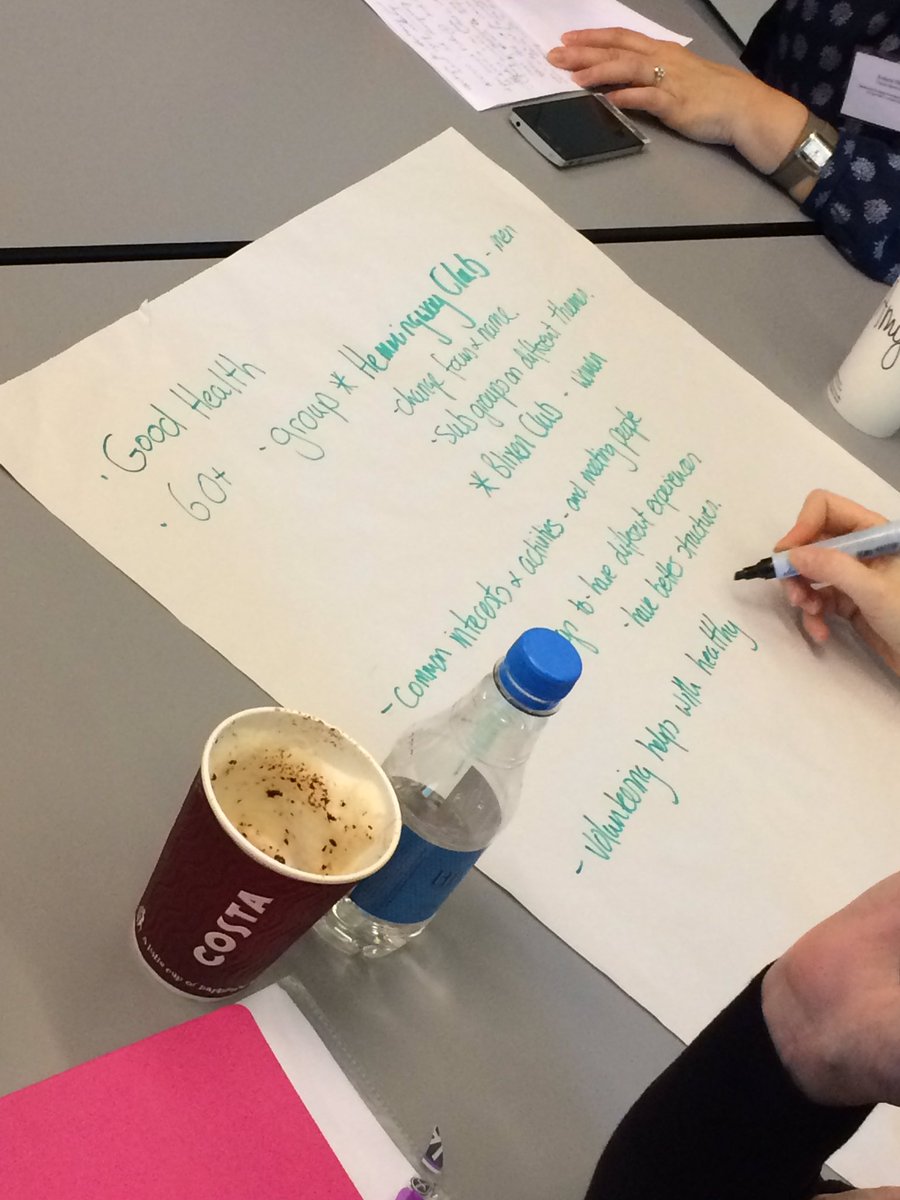 · Good Health
· 60+ · group * Hemingway Club - men
- change focus & name.
- sub groups on different themes.
* Blixen Club - women
- common interests & activities - and meeting people
to - have different experiences
- have better structures.
- volunteering helps with healthy
COSTA